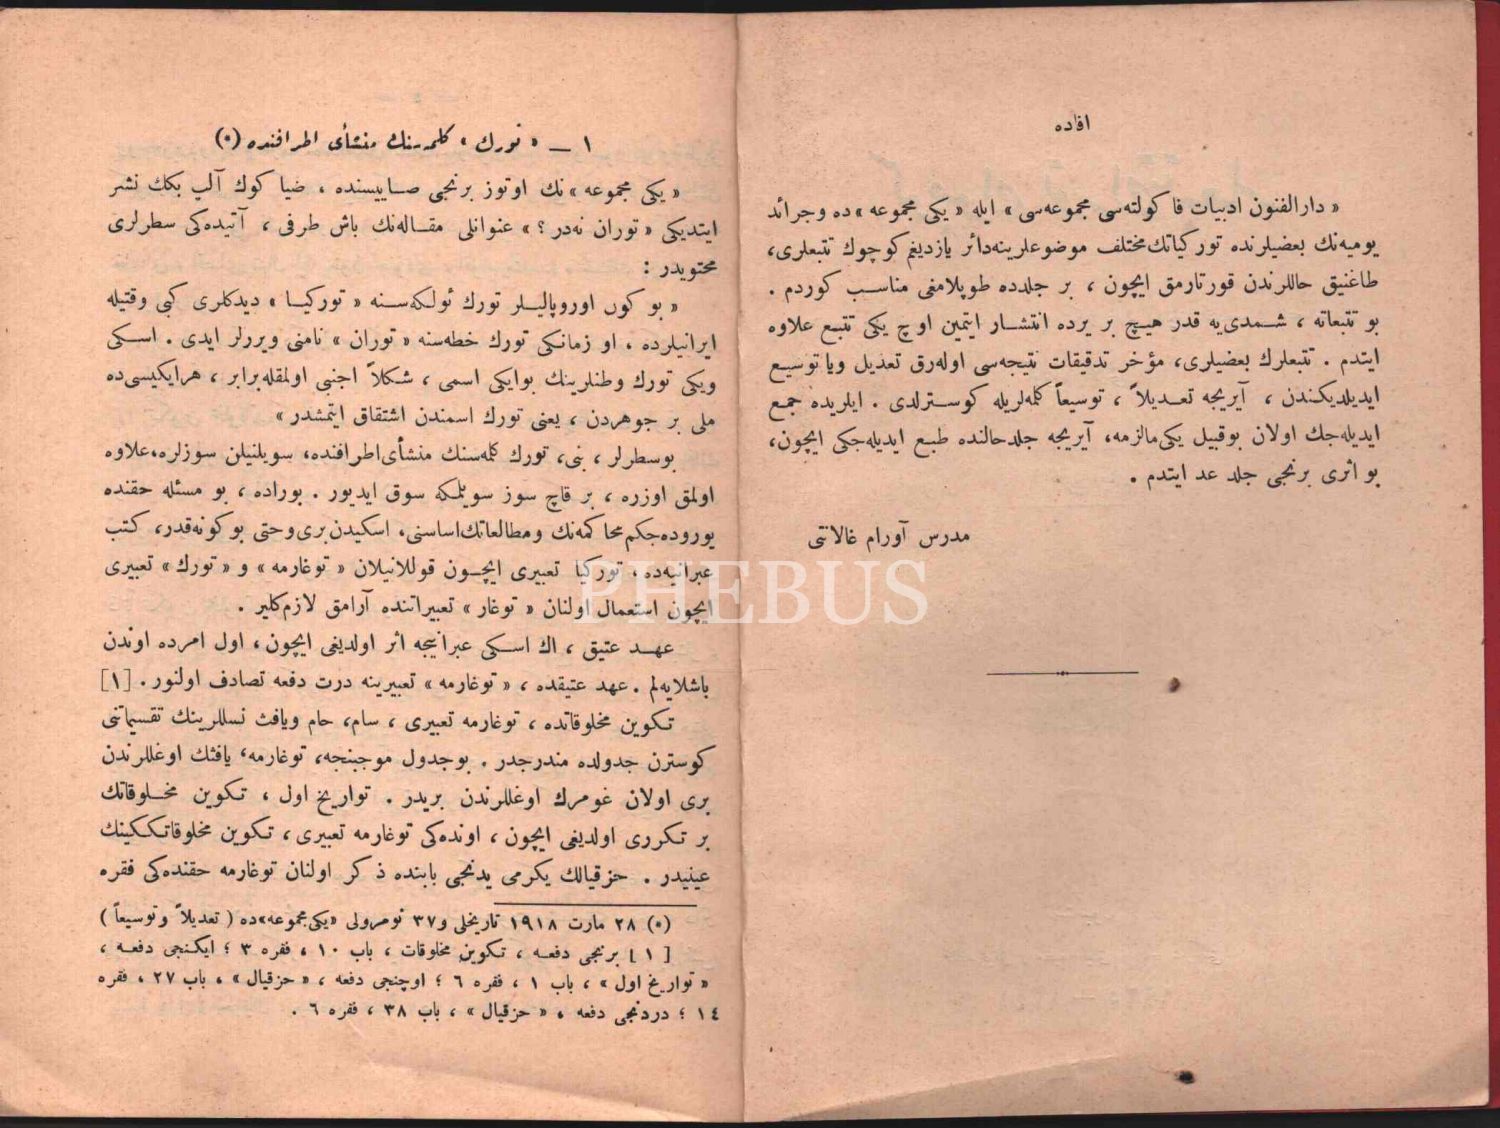 افاده
«دارالفنون ادبیات فاكولته‌سی مجموعه‌سی» ایله «یكی مجموعه»ده وجرائد
یومیه‌نك بعضیلرنده توركیاتك مختلف موضوعلرینه‌دائر یازدیغم كوچوك تتبعلری،
طاغنیق حاللرندن قورتارمق ایچون ، بر جلدده طوپلامغی مناسب كوردم .
بو تتبعاته ، شمدی‌یه قدر هیچ بر یرده انتشار ایتمین اوچ یكی تتبع علاوه
ایتدم . تتبعلرك بعضیلری، مؤخر تدقیقات نتیجه‌سی اوله‌رق تعدیل ویا توسیع
ایدیلدیكندن ، آیریجه تعدیلاً ، توسیعاً كلمه‌لریله كوسترلدی . ایلریده جمع
ایدیله‌جك اولان بوقبیل یكی‌مالزمه، آیریجه جلدحالنده طبع ایدیله‌جكی ایچون،
بو اثری برنجی جلد عد ایتدم .
مدرس آورام غالانتی
١ ــ «تورك» كلمه‌سنك منشأی اطرافنده (*)
«یكی مجموعه»نك اوتوز برنجی صاییسنده ، ضیا كوك آلپ بكك نشر
ایتدیكی «توران نه‌در ؟» عنوانلی مقاله‌نك باش طرفی ، آتیده‌كی سطرلری
محتویدر :
«بو كون اوروپالیلر تورك ئولكه‌سنه «توركیا» دیدكلری كبی وقتیله
ایرانیلرده ، او زمانكی تورك خطه‌سنه «توران» نامنی ویررلر ایدی . اسكی
ویكی تورك وطنلرینك بوایكی اسمی ، شكلاً اجنبی اولمقله‌برابر ، هرایكیسی‌ده
ملی بر جوهردن ، یعنی تورك اسمندن اشتقاق ایتمشدر»
بوسطرلر ، بنی، تورك كلمه‌سنك منشأی‌اطرافنده، سویلنیلن سوزلره،علاوه
اولمق اوزره ، بر قاچ سوز سویلمكه سوق ایدیور . بوراده ، بو مسئله حقنده
یوروده‌جكم‌محاكمه‌نك ومطالعاتك‌اساسنی، اسكیدن‌بری‌وحتی بوكونه‌قدر، كتب
عبرانیه‌ده، توركیا تعبیری ایچون قوللانیلان «توغارمه» و «تورك» تعبیری
ایچون استعمال اولنان «توغار» تعبیراتنده آرامق لازم‌كلیر .
عهد عتیق ، اك اسكی عبرانیجه اثر اولدیغی ایچون ، اول امرده اوندن
باشلایه‌لم . عهد عتیقده ، «توغارمه» تعبیرینه درت دفعه تصادف اولنور . [١]
تكوین مخلوقاتده ، توغارمه تعبیری ، سام، حام ویافث نسللرینك تقسیماتنی
كوسترن جدولده مندرجدر . بوجدول موجبنجه، توغارمه، یافثك اوغللرندن
بری اولان غومرك اوغللرندن بریدر . تواریخ اول ، تكوین مخلوقاتك
بر تكرری اولدیغی ایچون ، اونده‌كی توغارمه تعبیری ، تكوین مخلوقاتككینك
عینیدر . حزقیالك یكرمی یدنجی بابنده ذكر اولنان توغارمه حقنده‌كی فقره
(*) ٢٨ مارت ١٩١٨ تاریخلی و٣٧ نومرولی «یكی‌مجموعه»ده (تعدیلاً وتوسیعاً)
[١] برنجی دفعه ، تكوین مخلوقات ، باب ١٠ ، فقره ٣ ؛ ایكنجی دفعه ،
«تواریخ اول» ، باب ١ ، فقره ٦ ؛ اوچنجی دفعه ، «حزقیال» ، باب ٢٧ ، فقره
١٤ ؛ دردنجی دفعه ، «حزقیال» ، باب ٣٨ ، فقره ٦ .
PHEBUS